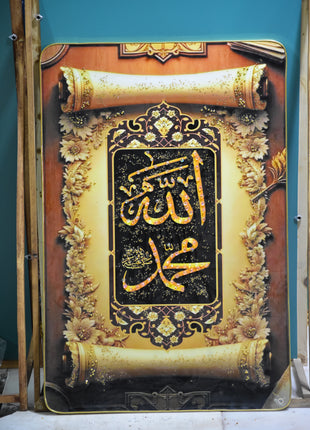 الله
محمد ﷺ